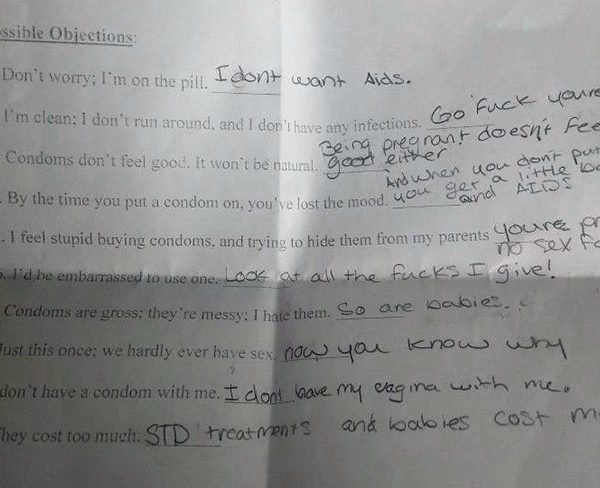 ssible Objections:
Don't worry; I'm on the pill. I dont want Aids.
I'm clean; I don't run around, and I don't have any infections. Go Fuck youre
Being pregnant doesn't fee
Condoms don't feel good. It won't be natural. good either
And when you don't put
By the time you put a condom on, you've lost the mood. you get a little ba
and AIDS
. I feel stupid buying condoms, and trying to hide them from my parents youre pr
no sex fo
. I'd be embarrassed to use one. Look at all the fucks I give!
Condoms are gross; they're messy; I hate them. So are babies.
Just this once; we hardly ever have sex. now you know why
don't have a condom with me. I dont have my vagina with me.
They cost too much. STD treatments and babies cost m